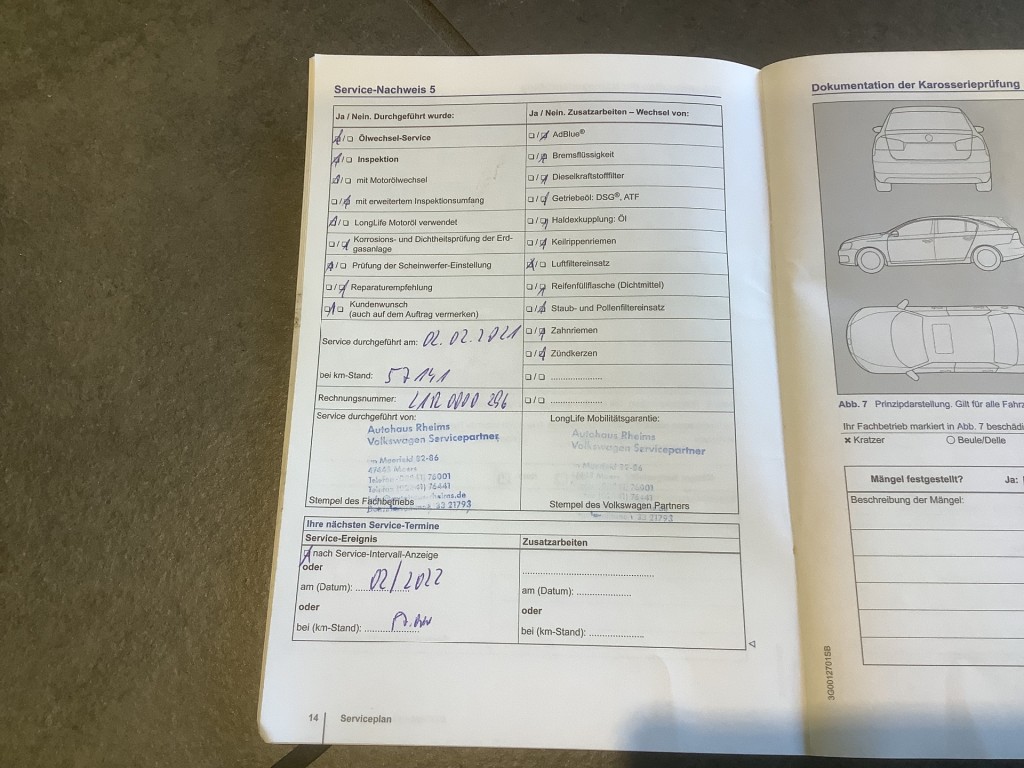 Service-Nachweis 5
Ja / Nein. Durchgeführt wurde:
Ölwechsel-Service
Inspektion
mit Motorölwechsel
mit erweitertem Inspektionsumfang
LongLife Motoröl verwendet
Korrosions- und Dichtheitsprüfung der Erd-
gasanlage
Prüfung der Scheinwerfer-Einstellung
Reparaturempfehlung
Kundenwunsch
(auch auf dem Auftrag vermerken)
Service durchgeführt am: 02.02.2021
bei km-Stand: 57141
Rechnungsnummer: 0000 296
Service durchgeführt von:
Autohaus Rheims
Volkswagen Servicepartner
76001
76441
21793
Stempel des Fachbetriebs
Ja / Nein. Zusatzarbeiten – Wechsel von:
AdBlue®
Bremsflüssigkeit
Dieselkraftstofffilter
Getriebeöl: DSG®, ATF
Haldexkupplung: Öl
Keilrippenriemen
Luftfiltereinsatz
Reifenfüllflasche (Dichtmittel)
Staub- und Pollenfiltereinsatz
Zahnriemen
Zündkerzen
LongLife Mobilitätsgarantie:
Autohaus Rheims
Volkswagen Servicepartner
Stempel des Volkswagen Partners
Ihre nächsten Service-Termine
Service-Ereignis
nach Service-Intervall-Anzeige
oder
am (Datum): 02/2022
oder
bei (km-Stand):
Zusatzarbeiten
am (Datum):
oder
bei (km-Stand):
14 Serviceplan
Dokumentation der Karosserieprüfung
Abb. 7 Prinzipdarstellung. Gilt für alle
Ihr Fachbetrieb markiert in Abb. 7
Kratzer Beule/Delle
Mängel festgestellt? Ja:
Beschreibung der Mängel:
3G0012701SB